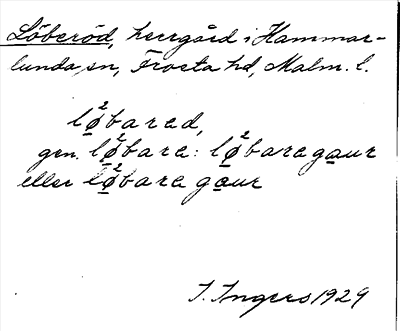 Löberöd, herrgård i Hammar-
lunda sn, Frosta hd, Malm. l.
lø²bared,
gen. lø²bara: lø²baragaur
eller lø²bara gaur
I. Ingers 1929